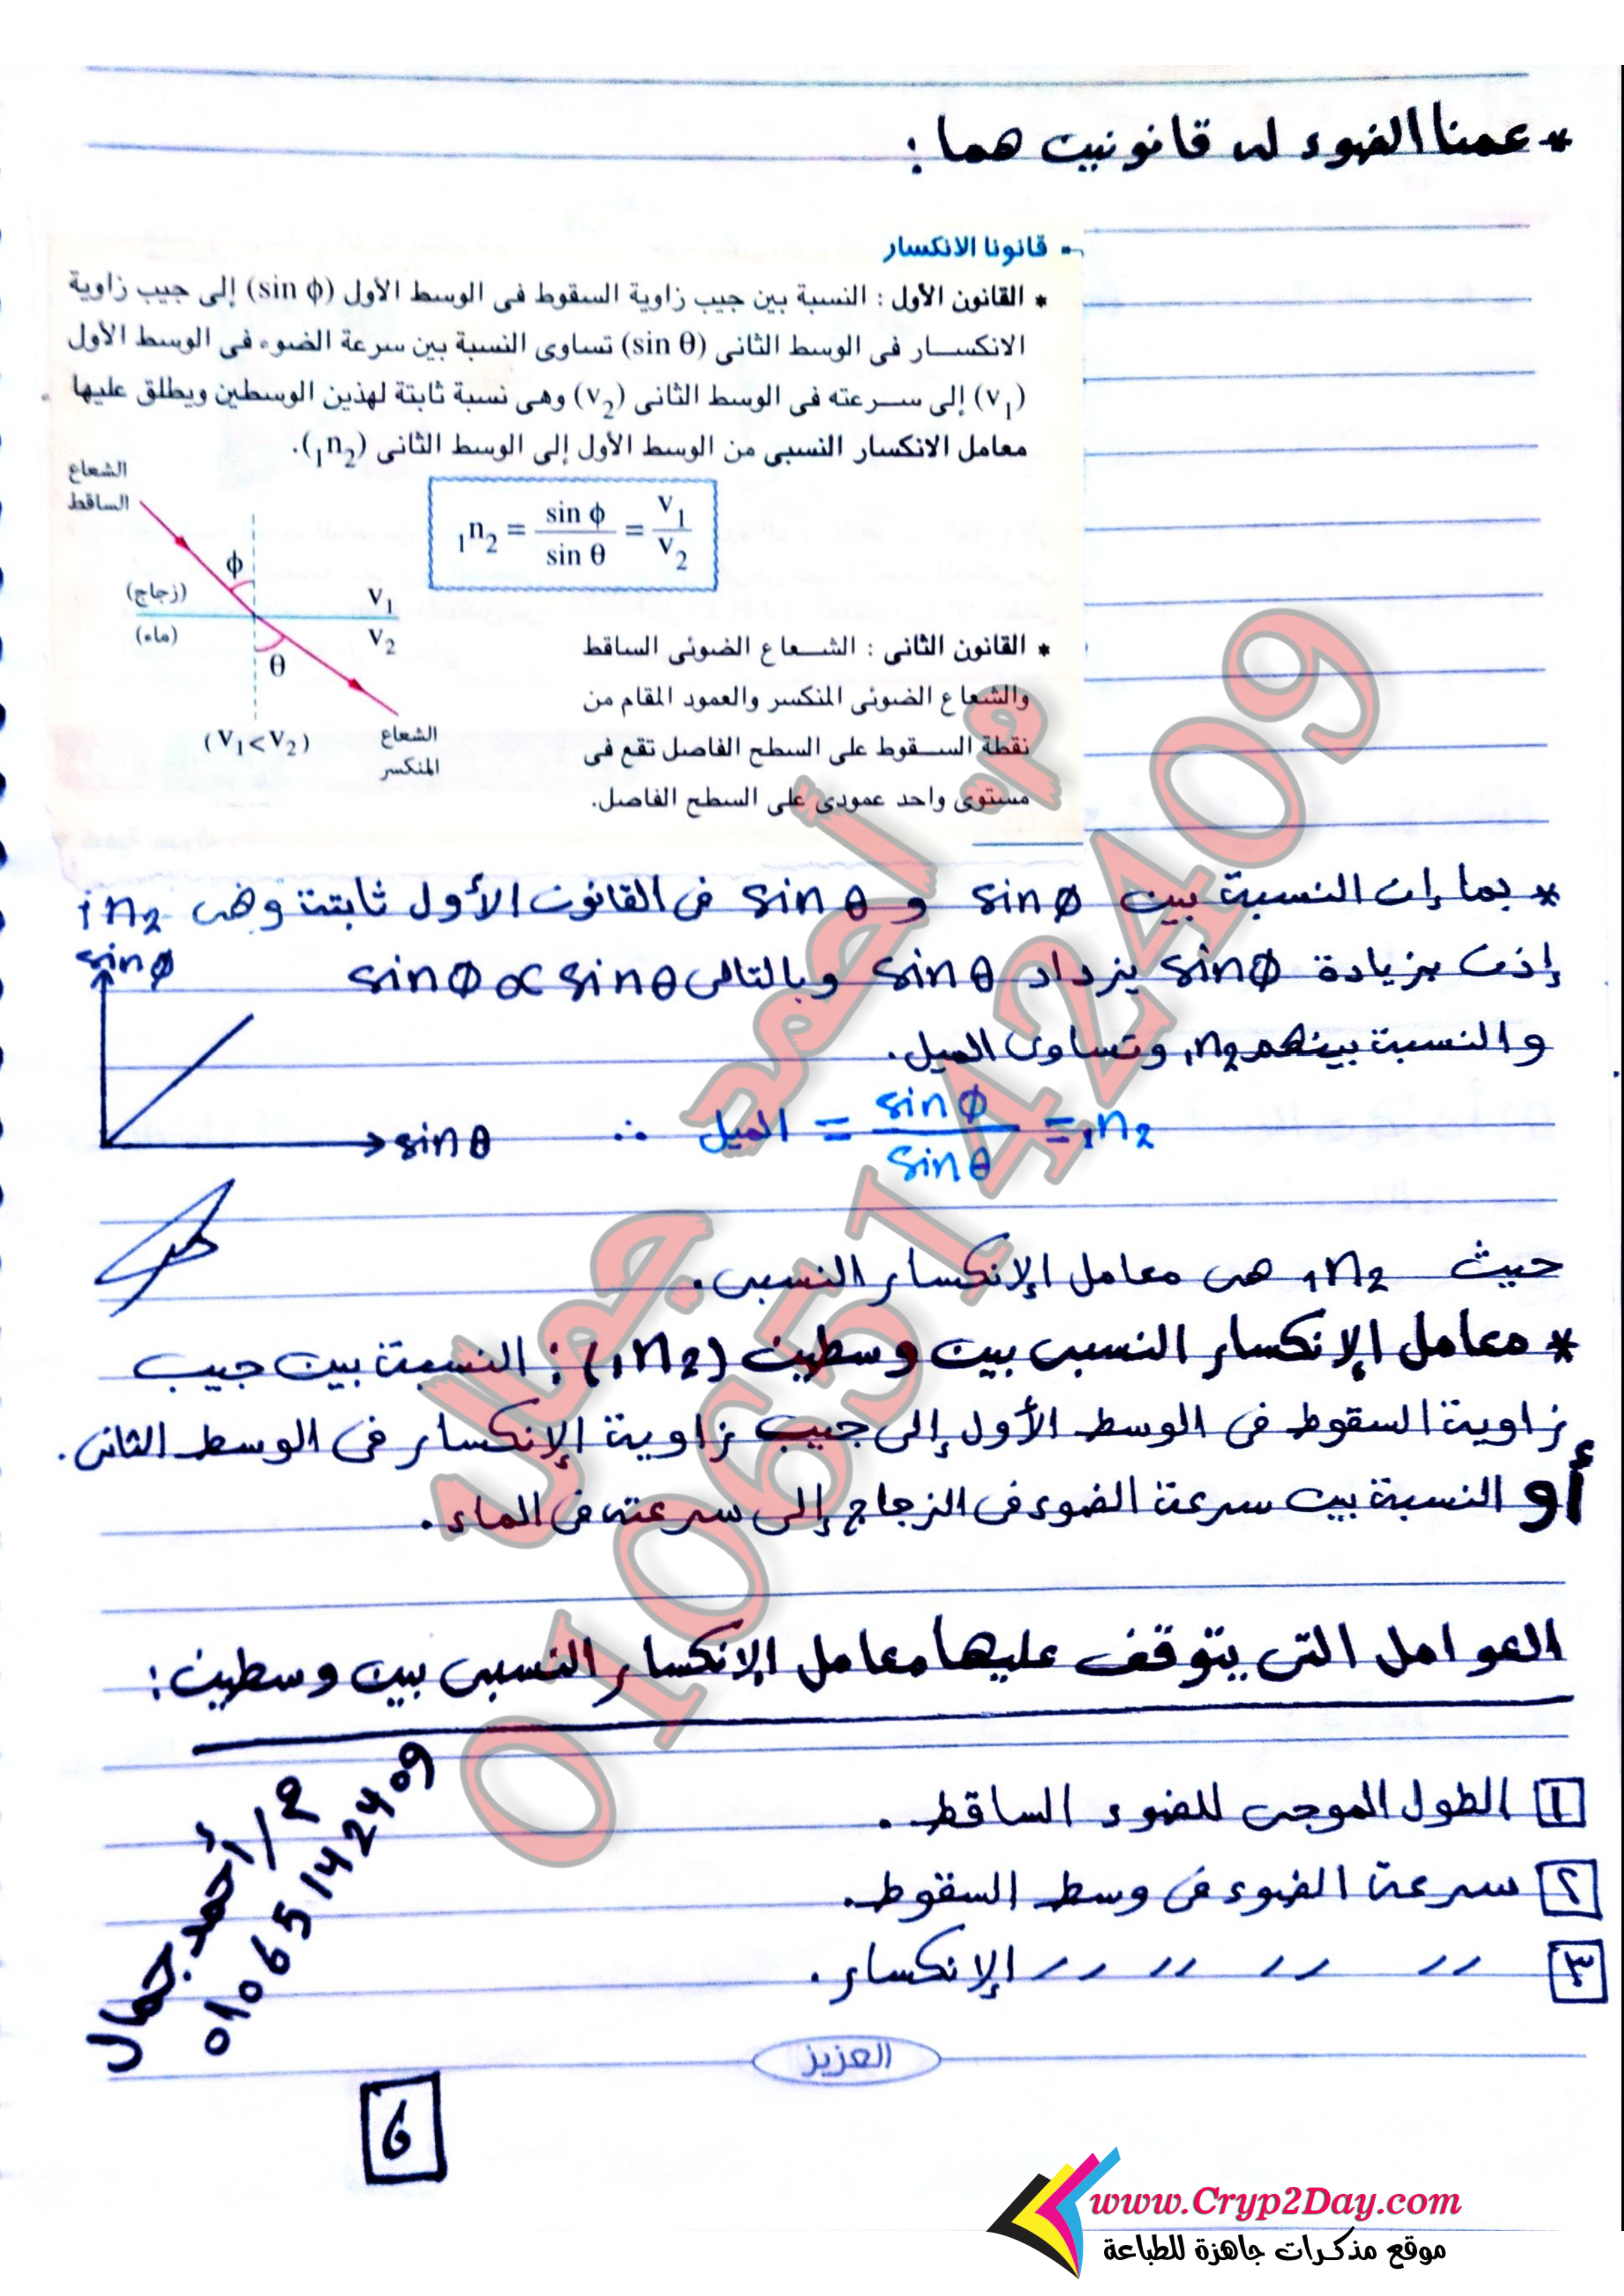 * عمنا الضوء له قانونين هما:
قانونا الانكسار
* القانون الأول : النسبة بين جيب زاوية السقوط فى الوسط الأول (sin ϕ) إلى جيب زاوية
الانكسار فى الوسط الثانى (sin θ) تساوى النسبة بين سرعة الضوء فى الوسط الأول
(v₁) إلى سرعته فى الوسط الثانى (v₂) وهى نسبة ثابتة لهذين الوسطين ويطلق عليها
معامل الانكسار النسبى من الوسط الأول إلى الوسط الثانى (₁n₂).
₁n₂ = sin ϕ / sin θ = v₁ / v₂
الشعاع
الساقط
ϕ
(زجاج)
v₁
(ماء)
v₂
θ
(v₁ < v₂)
الشعاع
المنكسر
* القانون الثانى : الشعاع الضوئى الساقط
والشعاع الضوئى المنكسر والعمود المقام من
نقطة السقوط على السطح الفاصل تقع فى
مستوى واحد عمودى على السطح الفاصل.
* بما إن النسبة بين sin ϕ و sin θ فى القانون الأول ثابتة وهى ₁n₂
إذن بزيادة sin ϕ يزداد sin θ وبالتالى sin ϕ ∝ sin θ
والنسبة بينهم ₁n₂ وتساوى الميل.
sin ϕ
sin θ
∴ الميل = sin ϕ / sin θ = ₁n₂
حيث ₁n₂ هى معامل الإنكسار النسبى.
* معامل الإنكسار النسبى بين وسطين (₁n₂): النسبة بين جيب
زاوية السقوط فى الوسط الأول إلى جيب زاوية الإنكسار فى الوسط الثانى.
أو النسبة بين سرعة الضوء فى الزجاج إلى سرعته فى الماء.
العوامل التى يتوقف عليها معامل الإنكسار النسبى بين وسطين:
١ الطول الموجى للضوء الساقط.
٢ سرعة الضوء فى وسط السقوط.
٣ 〃 〃 〃 〃 الإنكسار.
م/أحمد جمال
01065142409
العزيز
6
م. أحمد جمال
01065142409
www.Cryp2Day.com
موقع مذكرات جاهزة للطباعة